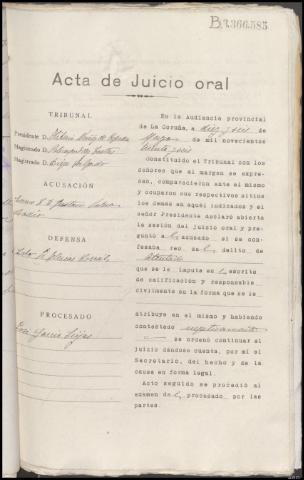 B.3366.585
Acta de Juicio oral
TRIBUNAL
Presidente D.
Magistrado D.
Magistrado D.
ACUSACIÓN
DEFENSA
PROCESADO
José García
En la Audiencia provincial
de La Coruña, a diez y seis de
Mayo de mil novecientos
treinta y seis
Constituido el Tribunal con los
señores que al margen se expre-
san, comparecieron ante el mismo
y ocuparon sus respectivos sitios
los demás en aquél indicados y el
señor Presidente declaró abierta
la sesión del juicio oral y pre-
guntó a l acusado si se con-
fesaba reo de l delito de
que se le imputa en l escrito
de calificación y responsable
civilmente en la forma que se le
atribuye en el mismo y habiendo
contestado negativamente
se ordenó continuar el
juicio dándose cuenta, por mí el
Secretario, del hecho y de la
causa en forma legal.
Acto seguido se procedió al
examen de l procesado por las
partes.